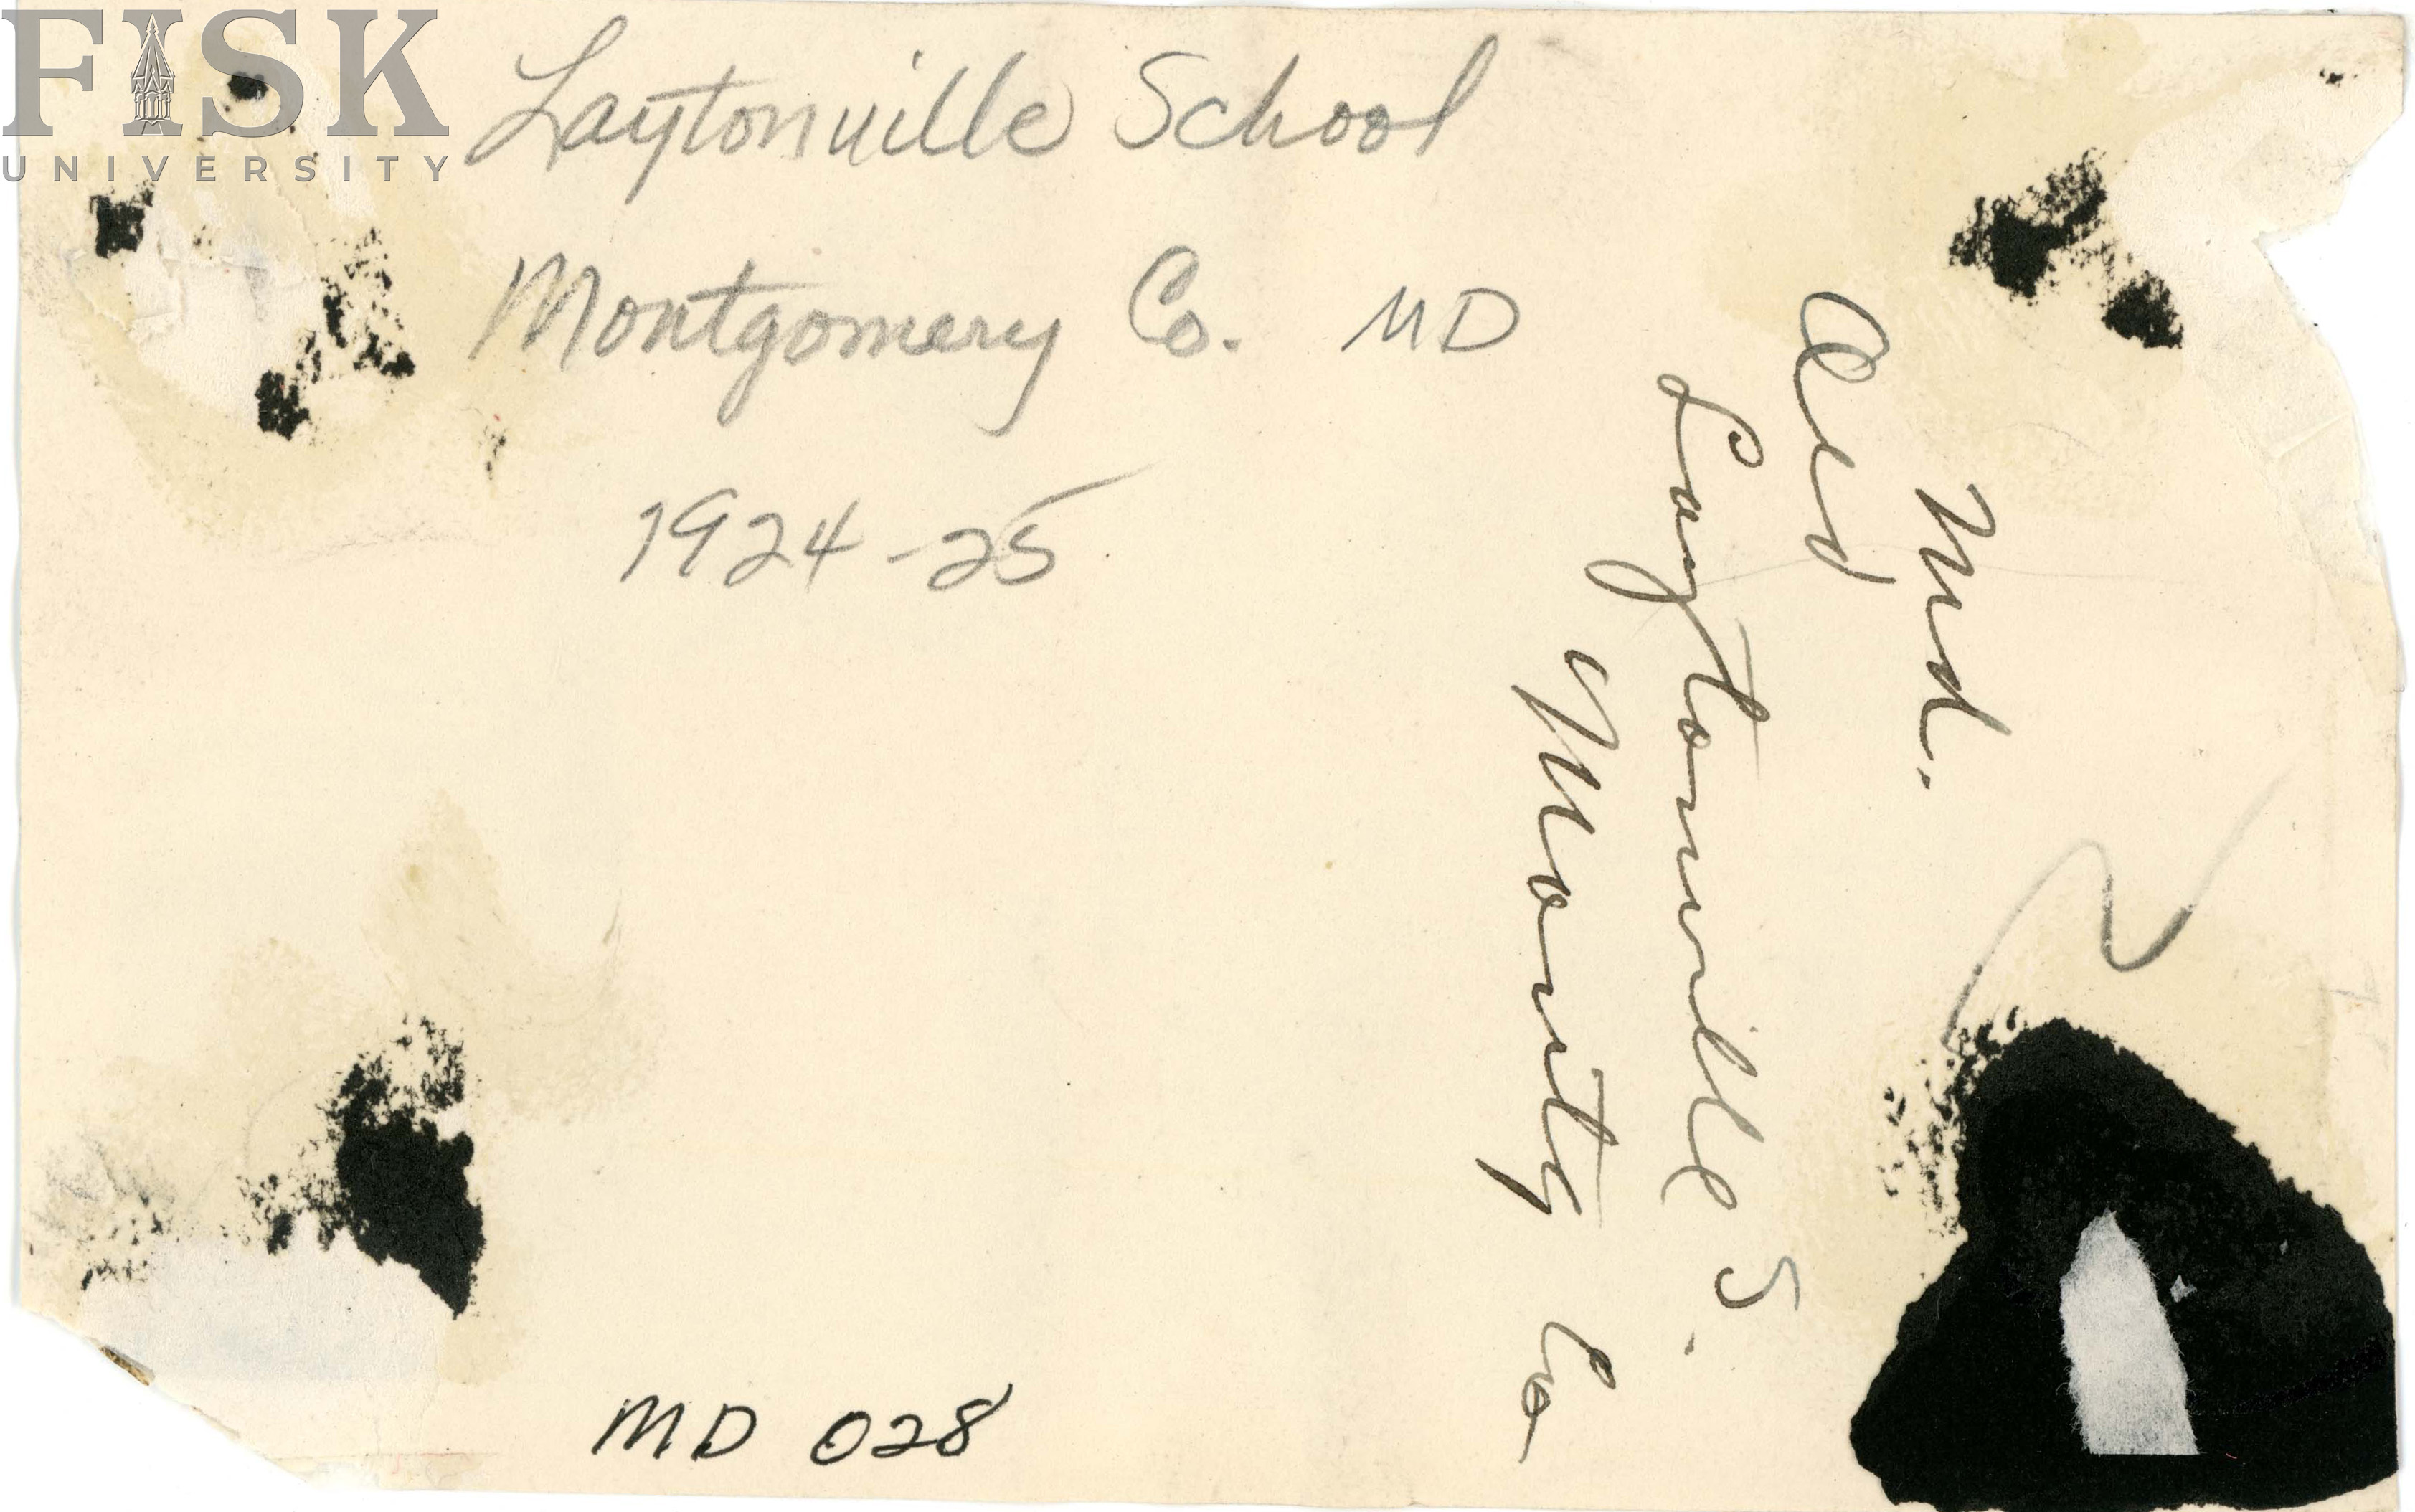 FISK
UNIVERSITY
Laytonville School
Montgomery Co. MD
1924-25
Md.
Old
Laytonville S.
Montg Co
MD 028